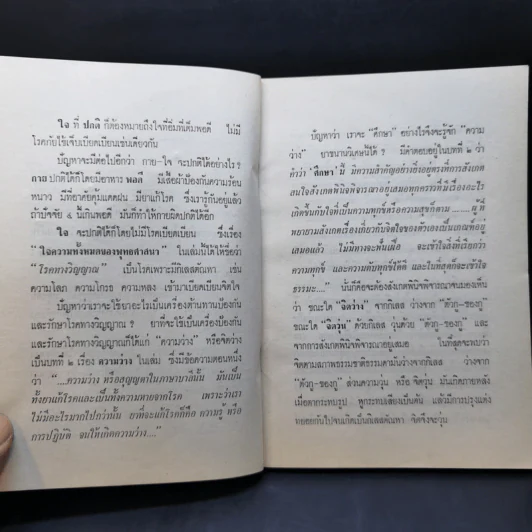 ใจ ที่ ปกติ ก็ต้องหมายถึงใจที่อิ่มที่เต็มพอดี ไม่มี
โรคภัยไข้เจ็บเบียดเบียนเช่นเดียวกัน
ปัญหาจะมีต่อไปอีกว่า กาย-ใจ จะปกติได้อย่างไร ?
กาย ปกติได้ก็โดยมีอาหาร พอดี มีเสื้อผ้าป้องกันความร้อน
หนาว มีที่อาศัยคุ้มแดดฝน มียาแก้โรค ซึ่งเรารู้กันอยู่แล้ว
ถ้าปัจจัย ๔ นี้เกินพอดี มันก็ทำให้กายผิดปกติได้อีก
ใจ จะปกติได้ก็โดยไม่มีโรคเบียดเบียน ซึ่งเรื่อง
"ใจความทั้งหมดของพุทธศาสนา" ในเล่มนี้ได้ให้ชื่อว่า
"โรคทางวิญญาณ" เป็นโรคเพราะมีกิเลสตัณหา เช่น
ความโลภ ความโกรธ ความหลง เข้ามาเบียดเบียนจิตใจ
ปัญหาว่าเราจะใช้ยาอะไรเป็นเครื่องต้านทานป้องกัน
และรักษาโรคทางวิญญาณ ? ยาที่จะใช้เป็นเครื่องป้องกัน
และรักษาโรคทางวิญญาณที่ดีนั้นก็ได้แก่ "ความว่าง" หรือ
เป็นบทที่ ๒ เรื่อง ความว่าง ในเล่ม ซึ่งมีข้อความตอนหนึ่ง
ว่า "....ความว่าง หรือสุญญตาในภาษาบาลีนั้น มันเป็น
ทั้งยาแก้โรคและเป็นทั้งความหายจากโรค เพราะว่าเรา
ไม่มีอะไรมากไปกว่านั้น ยาที่จะแก้โรคก็คือ ความรู้ หรือ
การปฏิบัติ จนให้เกิดความว่าง...."
ปัญหาว่า เราจะ "ศึกษา" อย่างไรจึงจะรู้จัก "ความ
ว่าง" ยาขนานวิเศษนี้ได้ ? มีคำตอบอยู่ในบทที่ ๒ ว่า
คำว่า 'ศึกษา' นี้ มีความสำคัญอย่างยิ่งอยู่ตรงที่การสังเกต
สนใจสังเกตพินิจพิจารณาอยู่เสมอทุกคราวที่มีเรื่องอะไร
เกิดขึ้นกับใจที่เป็นความทุกข์หรือความสุขก็ตาม ........ผู้ที่
พยายามสังเกตเรื่องเกี่ยวกับจิตใจของตัวเองเป็นเกณฑ์อยู่
เสมอแล้ว ไม่มีทางจะพ้นที่ จะเข้าใจสิ่งที่เรียกว่า
ความทุกข์ และความดับทุกข์ได้ดี และในที่สุดก็จะเข้าใจ
ธรรมะ...." นั่นก็คือจะต้องสังเกตพินิจพิจารณาจนมองเห็น
ว่า ขณะใด "จิตว่าง" จากกิเลส ว่างจาก "ตัวกู-ของกู"
ขณะใด "จิตวุ่น" ด้วยกิเลส วุ่นด้วย "ตัวกู-ของกู" และ
จากการสังเกตพินิจพิจารณาอยู่เสมอ ในที่สุดจะพบว่า
จิตตามสภาพธรรมชาติธรรมดามันว่างจากกิเลส ว่างจาก
"ตัวกู-ของกู" ส่วนความวุ่น หรือ จิตวุ่น มันเกิดภายหลัง
เมื่อตากระทบรูป หูกระทบเสียงเป็นต้น แล้วมีการปรุงแต่ง
ทยอยกันไปจนเกิดเป็นกิเลสตัณหา จิตจึงจะวุ่น